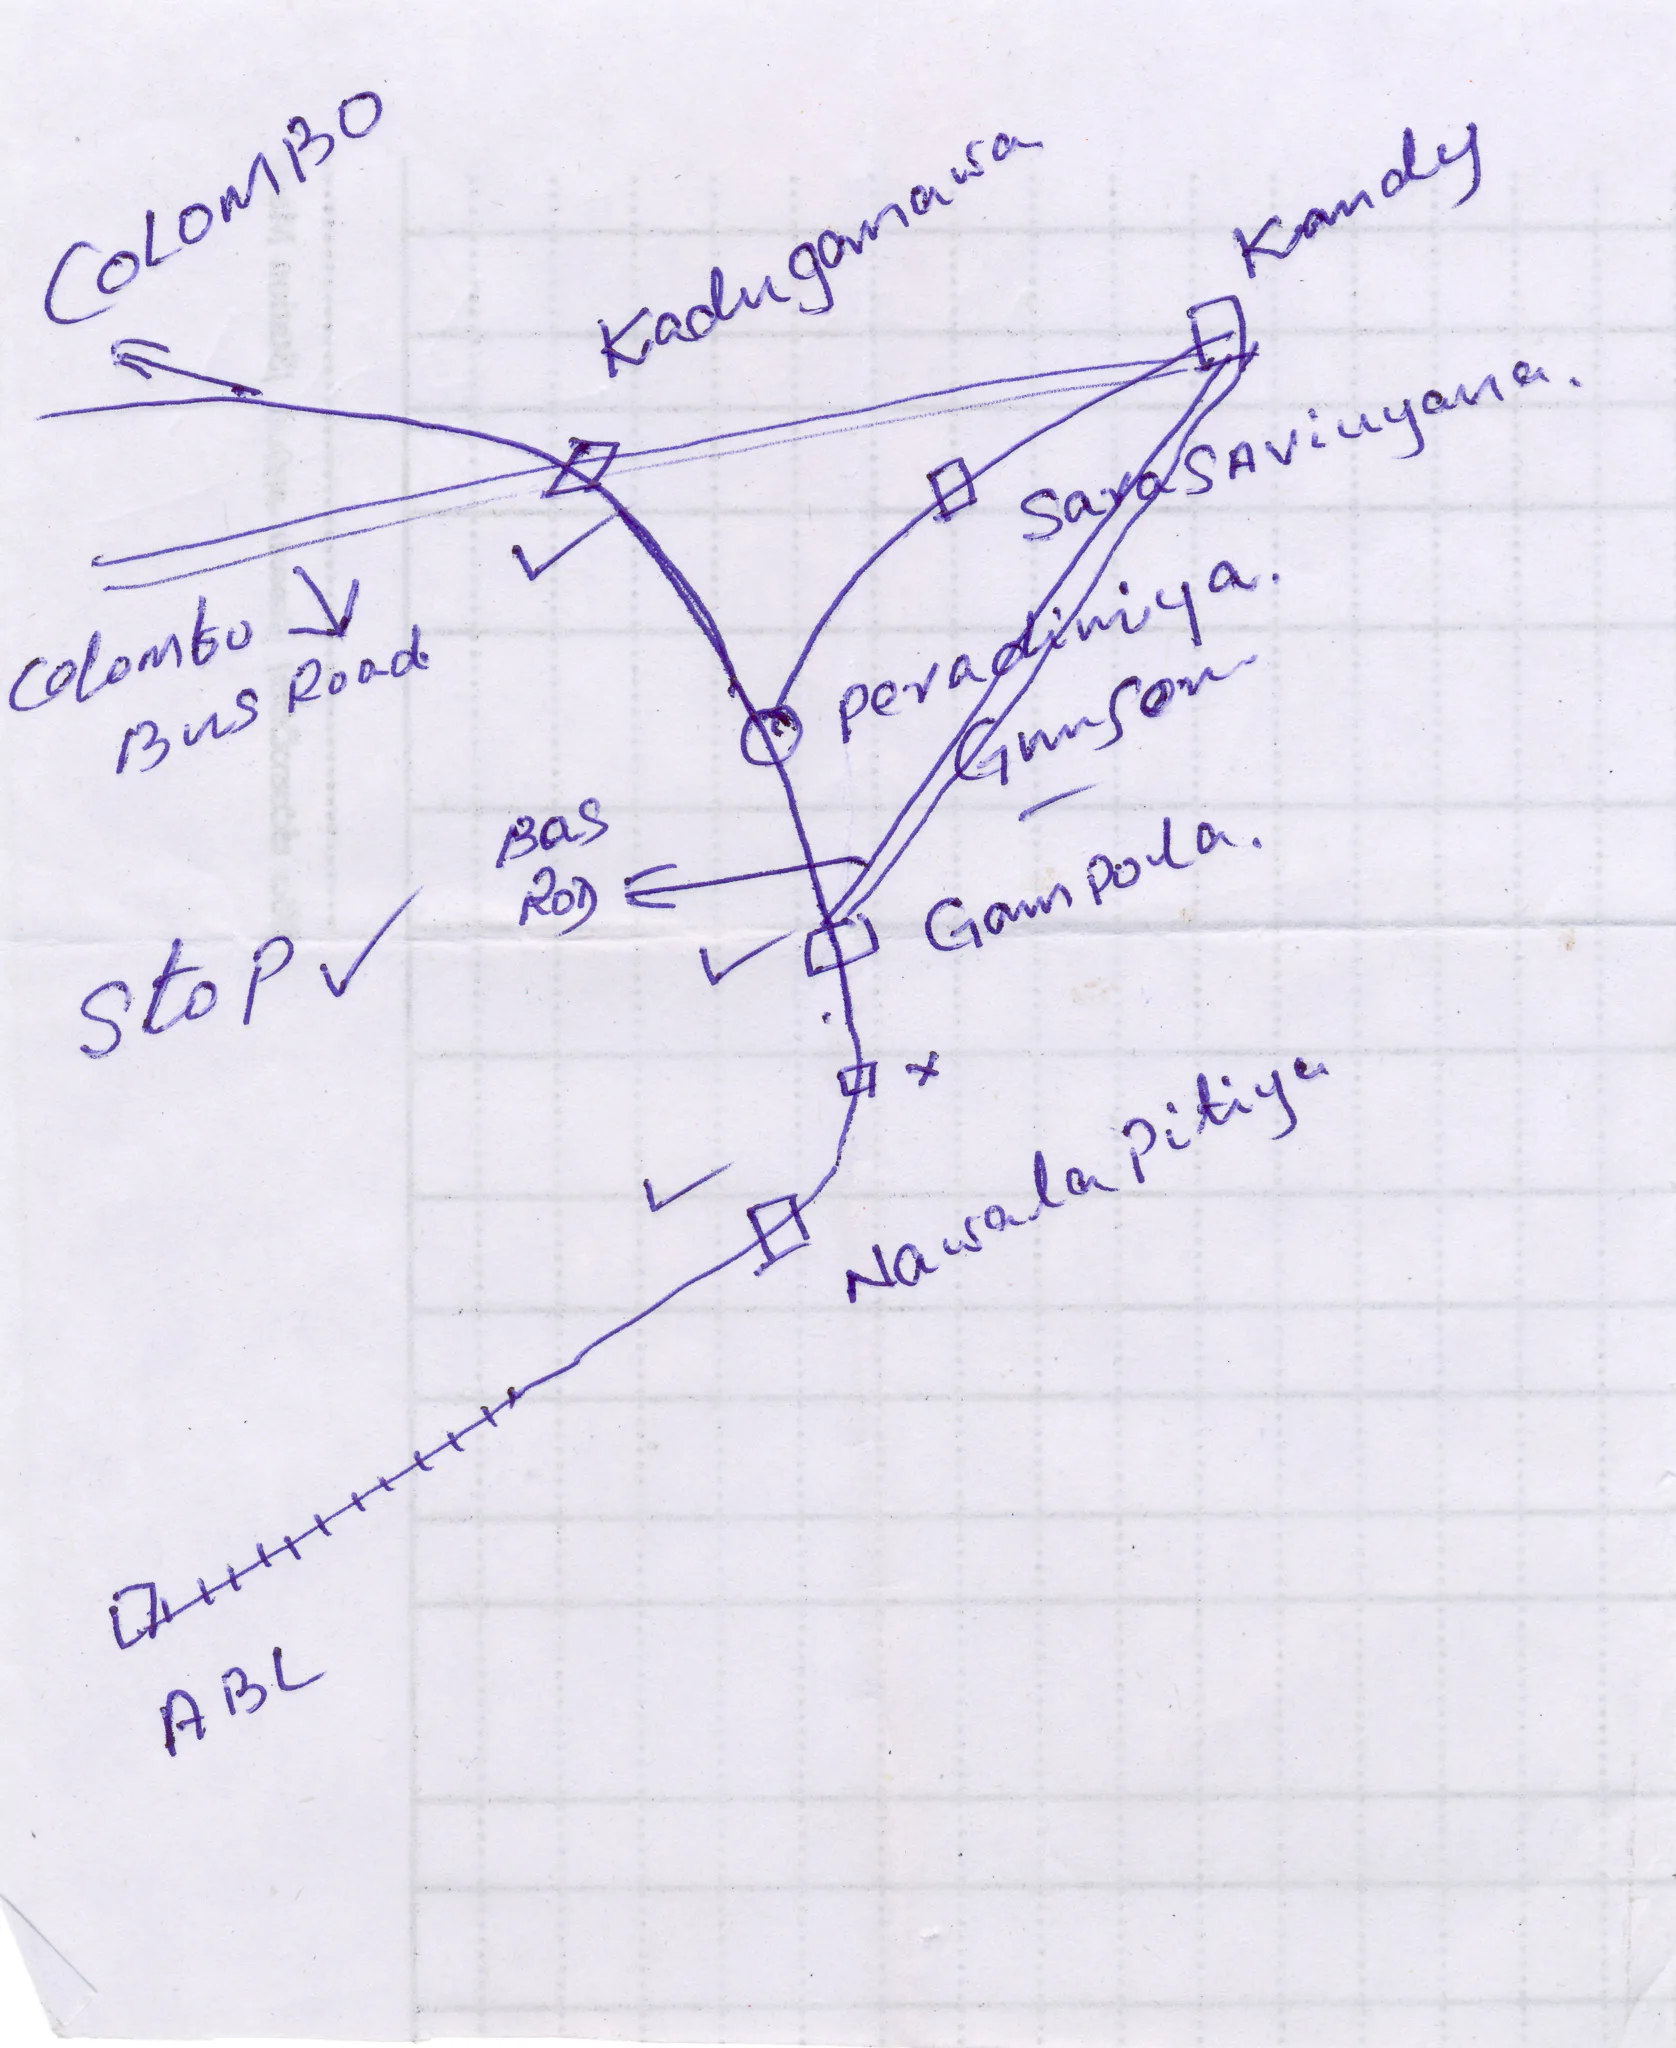 COLOMBO
Kadugannawa
Kandy
SaraSAViuyana.
Colombo
Bus Road
peradiniya.
BaS
ROD
Gampola.
Stop ✓
x
Nawala Pitiya
ABL